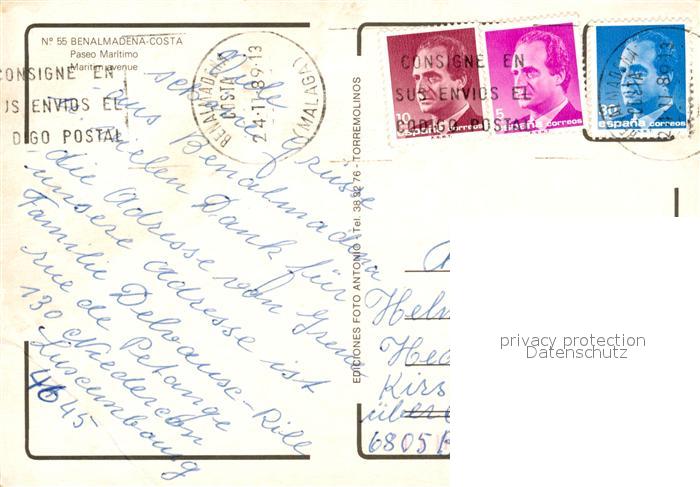 Nº 55 BENALMADENA-COSTA
Paseo Maritimo
Maritim avenue
CONSIGNE EN
SUS ENVIOS EL
CODIGO POSTAL
BENALMADENA
COSTA
24-11-89-13
(MALAGA)
CONSIGNE EN
SUS ENVIOS EL
CODIGO POSTAL
10
españa correos
5
españa correos
españa correos
Viele
schöne Grüsse
aus Benalmadena
vielen Dank für
die Adresse von
unsere Adresse ist
Familie
rue de Petange
130 Niedercorn
Luxembourg
4645
EDICIONES FOTO ANTONIO - Tel. 38 32 76 - TORREMOLINOS
Helm
Hed
Kirs
über
6805
privacy protection
Datenschutz